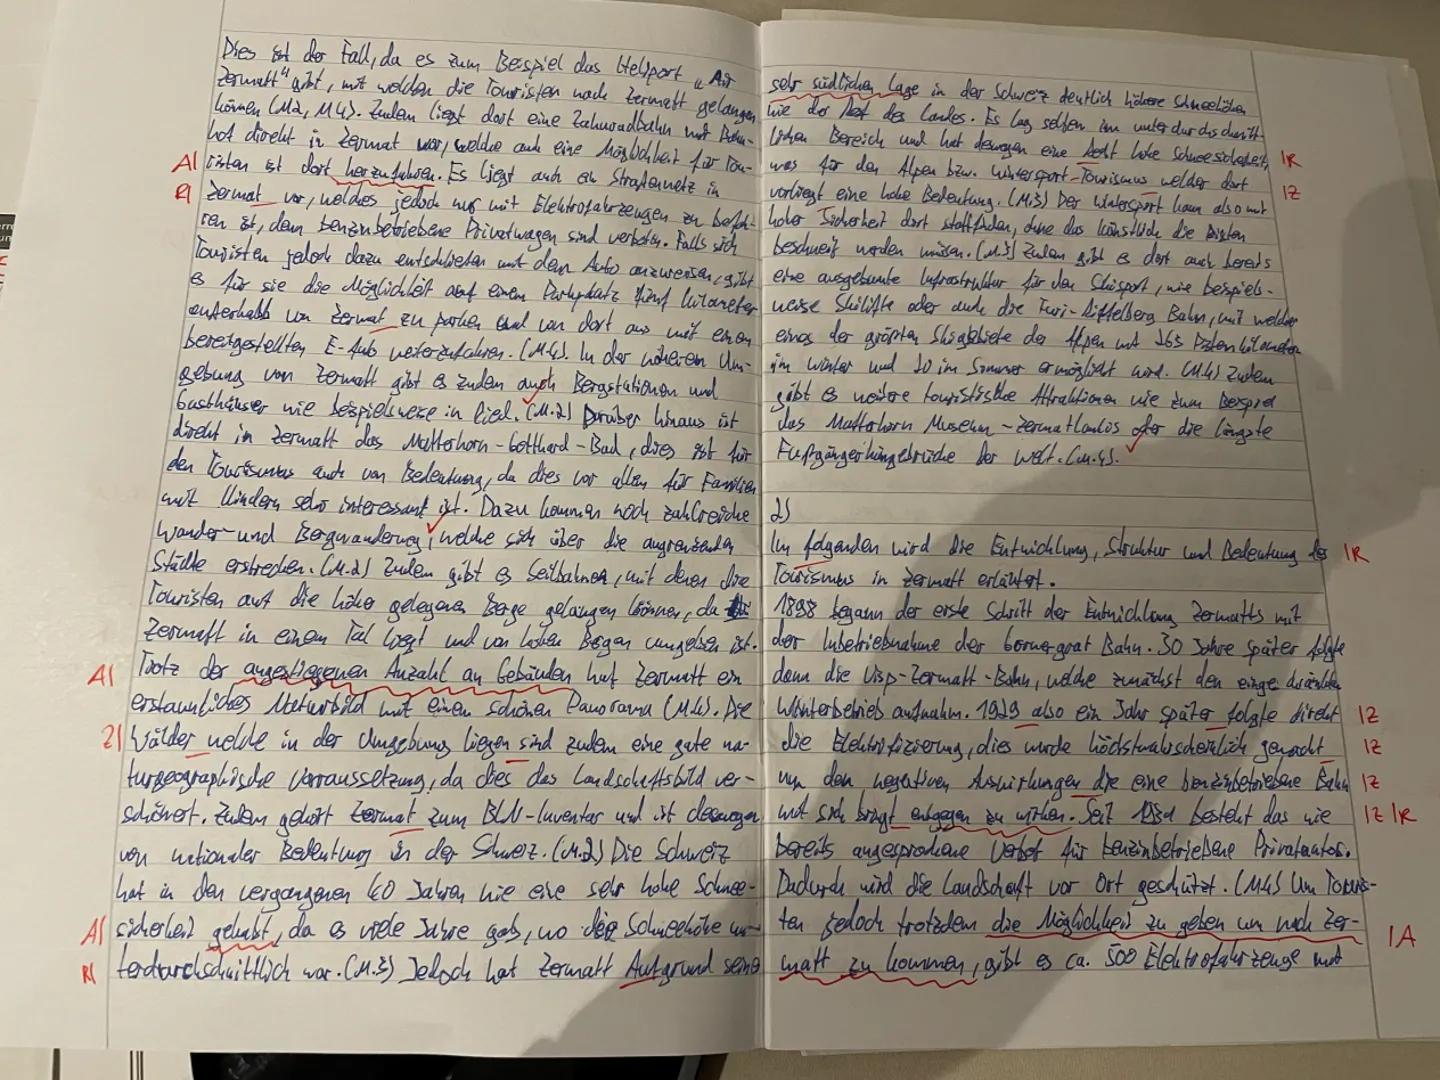 Dies ist der Fall, da es zum Beispiel das Heliport „Air
Zermatt" gibt, mit welchen die Touristen nach Zermatt gelangen
können (M2, M4). Zudem liegt dort eine Zahnradbahn mit Bahn-
hof direkt in Zermat vor, welche auch eine Möglichkeit für Tou-
A| risten ist dort herzufahren. Es liegt auch ein Straßennetz in
R| Zermat vor, welches jedoch nur mit Elektrofahrzeugen zu befah-
ren ist, denn benzinbetriebene Privatwagen sind verboten. Falls sich
Touristen jedoch dazu entschließen mit dem Auto anzureisen, gibt
es für sie die Möglichkeit auf einem Parkplatz fünf Kilometer
außerhalb von Zermat zu parken und von dort aus mit einen
bereitgestellten E-Auto weiterzufahren. (M.4). In der näheren Um-
gebung von Zermatt gibt es zudem auch Bergstationen und
Gasthäuser wie beispielsweise in Ried. (M.2) Darüber hinaus ist
direkt in Zermatt das Matterhorn-Gotthard-Bad, dies ist für
den Tourismus auch von Bedeutung, da dies vor allem für Familien
mit Kindern sehr interessant ist. Dazu kommen noch zahlreiche
Wander- und Bergwanderweg, welche sich über die angrenzenden
Städte erstrecken. (M.2) Zudem gibt es Seilbahnen, mit denen die
Touristen auf die höher gelegenen Berge gelangen können, da
Zermatt in einem Tal liegt und von hohen Bergen umgeben ist.
A| Trotz der angestiegenen Anzahl an Gebäuden hat Zermatt ein
erstaunliches Naturbild mit einem schönen Panorama (M.4). Die
Z| Wälder welche in der Umgebung liegen sind zudem eine gute na-
turgeographische Vorraussetzung, da dies das Landschaftsbild ver-
schönert. Zudem gehört Zermat zum BLN-Inventar und ist deswegen
von nationaler Bedeutung in der Schweiz. (M.2) Die Schweiz
hat in den vergangenen 60 Jahren nie eine sehr hohe Schnee-
A| sicherheit gehabt, da es viele Jahre gab, wo die Schneehöhe un-
R| terdurchschnittlich war. (M.3) Jedoch hat Zermatt Aufgrund seine
sehr südlichen Lage in der Schweiz deutlich höhere Schneehöhen
wie der Rest des Landes. Es lag selten im unterdurchschnitt-
lichen Bereich und hat deswegen eine Recht hohe Schneesicherheit, |R
was für den Alpen bzw. Wintersport-Tourismus welcher dort |Z
vorliegt eine hohe Bedeutung. (M.3) Der Wintersport kann also mit
hoher Sicherheit dort stattfinden, ohne das künstlich die Pisten
beschneit werden müssen. (M.3) Zudem gibt es dort auch bereits
eine ausgebaute Infrastruktur für den Skisport, wie beispiels-
weise Skilifte oder auch die Furi-Riffelberg Bahn, mit welcher
eines der größten Skigebiete der Alpen mit 365 Pistenkilometer
im Winter und 20 im Sommer ermöglicht wird. (M.4) Zudem
gibt es weitere touristische Attraktionen wie zum Beispiel
das Matterhorn Museum-Zermatlantis oder die längste
Fußgängerhängebrücke der Welt. (M.4).
2)
Im folgenden wird die Entwicklung, Struktur und Bedeutung des |R
Tourismus in Zermatt erläutert.
1898 begann der erste Schritt der Entwicklung Zermatts mit
der Inbetriebnahme der Gornergrat Bahn. 30 Jahre später folgte
dann die Visp-Zermatt-Bahn, welche zunächst den
Winterbetrieb aufnahm. 1929 also ein Jahr später folgte direkt |Z
die Elektrifizierung, dies wurde höchstwahrscheinlich gemacht |Z
um den negativen Auswirkungen die eine benzinbetriebene Bahn |Z
mit sich bringt entgegen zu wirken. Seit besteht das wie |Z |R
bereits angesprochene Verbot für benzinbetriebene Privatautos.
Dadurch wird die Landschaft vor Ort geschützt. (M4) Um Touris-
ten jedoch trotzdem die Möglichkeit zu geben um nach Zer- |A
matt zu kommen, gibt es ca. 500 Elektrofahrzeuge mit